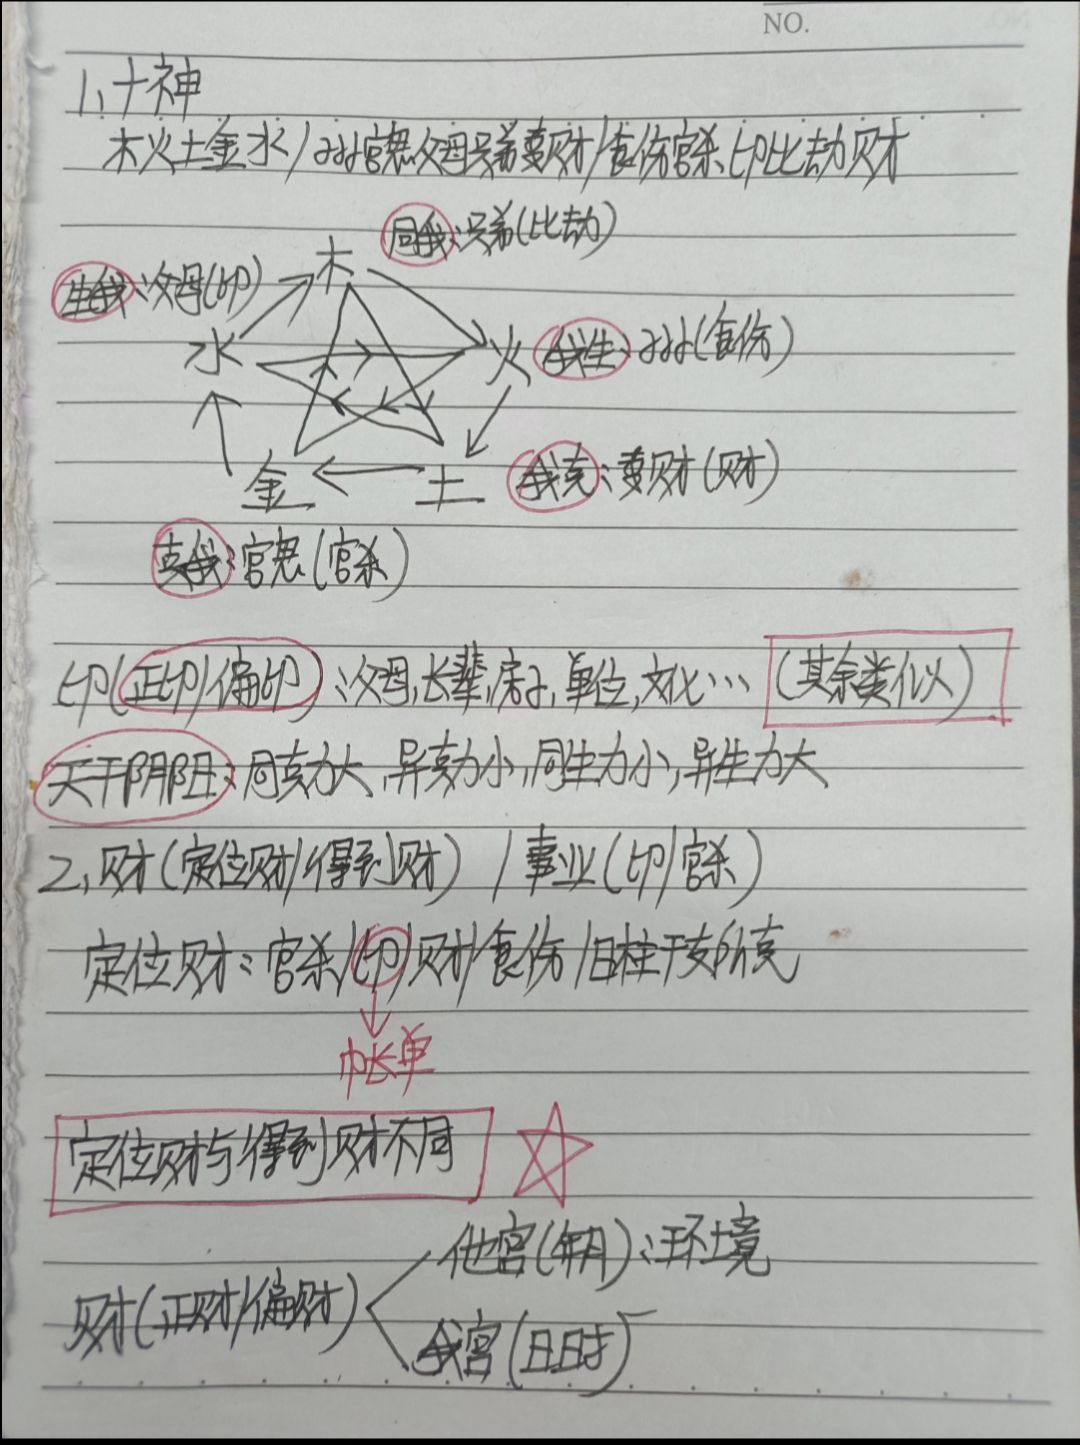 NO.
1、十神
木火土金水/子孙官鬼父母兄弟妻财/食伤官杀印比劫财
同我:兄弟(比劫)
木
生我:父母(印)
水
火
我生:子孙(食伤)
金
土
我克:妻财(财)
克我:官鬼(官杀)
印(正印/偏印):父母,长辈,房子,单位,文化… (其余类似)
天干阴阳:同克力大,异克力小,同生力小,异生力大
2、财(定位财/得到财) / 事业(印/官杀)
定位财:官杀/印/财/食伤/日柱干支所克
帐单
定位财与得到财不同
他宫(年月):环境
财(正财/偏财)
我宫(日时)